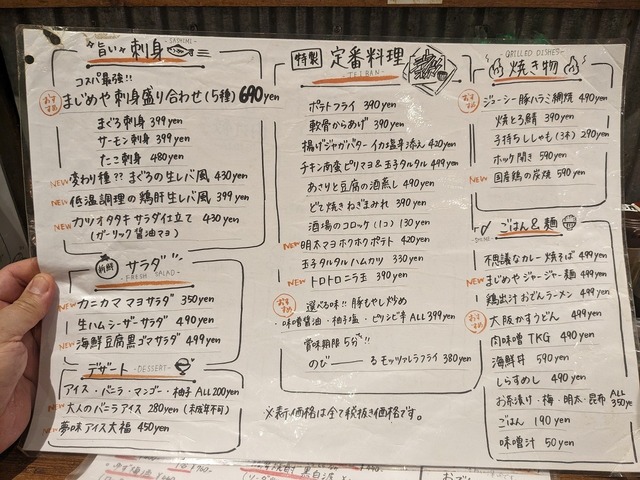 旨い刺身
SASHIMI
コスパ最強!!
おすすめ まじめや刺身盛り合わせ(5種) 690yen
まぐろ刺身 399yen
サーモン刺身 399yen
たこ刺身 480yen
NEW 変わり種?? まぐろの生レバ風 430yen
NEW 低温調理の鶏肝生レバ風 399yen
NEW カツオタタキ サラダ仕立て 430yen
(ガーリック醤油マヨ)
新鮮 サラダ
-FRESH SALAD-
NEW カニカママヨサラダ 350yen
生ハムシーザーサラダ 490yen
NEW 海鮮豆腐黒ゴマサラダ 499yen
デザート -DESSERT-
アイス・バニラ・マンゴー・柚子 ALL200yen
NEW 大人のバニラアイス 280yen (未成年不可)
NEW 夢味アイス大福 450yen
特製 定番料理
TEIBAN
ポテトフライ 390yen
軟骨からあげ 390yen
揚げジャガバター イカ塩辛添え 420yen
チキン南蛮ピリマヨ&玉子タルタル 499yen
あさりと豆腐の酒蒸し 490yen
どて焼きねぎまみれ 390yen
酒場のコロッケ(1コ) 130yen
NEW 明太マヨホクホクポテト 420yen
玉子タルタルハムカツ 330yen
NEW トロトロニラ玉 390yen
おすすめ 選べる味!! 豚もやし炒め
・味噌醤油・柚子塩・ピリシビ辛 ALL399yen
賞味期限5分!!
のび――るモッツァレラフライ 380yen
※表示価格は全て税抜き価格です。
-GRILLED DISHES-
焼き物
おすすめ ジューシー豚ハラミ網焼 490yen
焼とろ鯖 390yen
子持ちししゃも(3本) 290yen
ホッケ開き 590yen
NEW 国産鶏の炭焼 590yen
ごはん&麺
SHIME
不思議なカレー焼そば 499yen
NEW まじめやジャージャー麺 499yen
鶏出汁おでんラーメン 499yen
おすすめ 大阪かすうどん 499yen
肉味噌TKG 490yen
海鮮丼 590yen
しらすめし 490yen
お茶漬け・梅・明太・昆布 ALL 350yen
ごはん 190yen
味噌汁 50yen